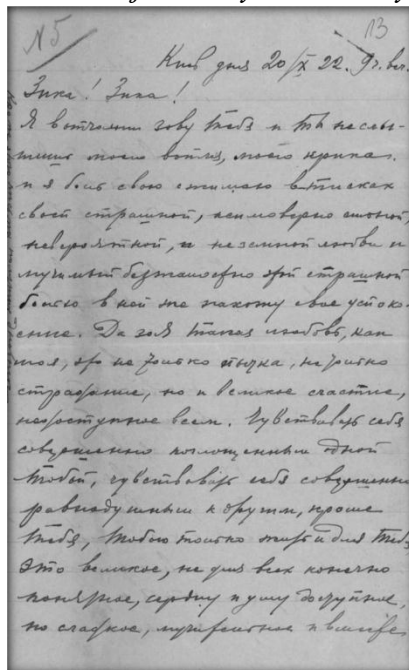 № 5
13
Киев дня 20/X 22. 9 ч. веч.
Зика! Зика!
Я отчаянно зову тебя и ты не слы-
шишь моего вопля, моего крика.
и я боль свою сжимаю в тисках
своей страшной, неимоверно
невероятной, и неземной любви и
мучимый безжалостно этой страшной
болью в ней же нахожу свое успоко-
ение. Да такая любовь, как
моя, это не только пытка, не только
страдание, но и великое счастие,
недоступное всем. Чувствовать себя
совершенно поглощенным одной
тобой, чувствовать себя совершенно
равнодушным к другим, кроме
тебя, тобою только жить и для тебя
Это великое, не для всех конечно
понятное, сердцу и уму доступное,
но сладкое, мучительное и вместе